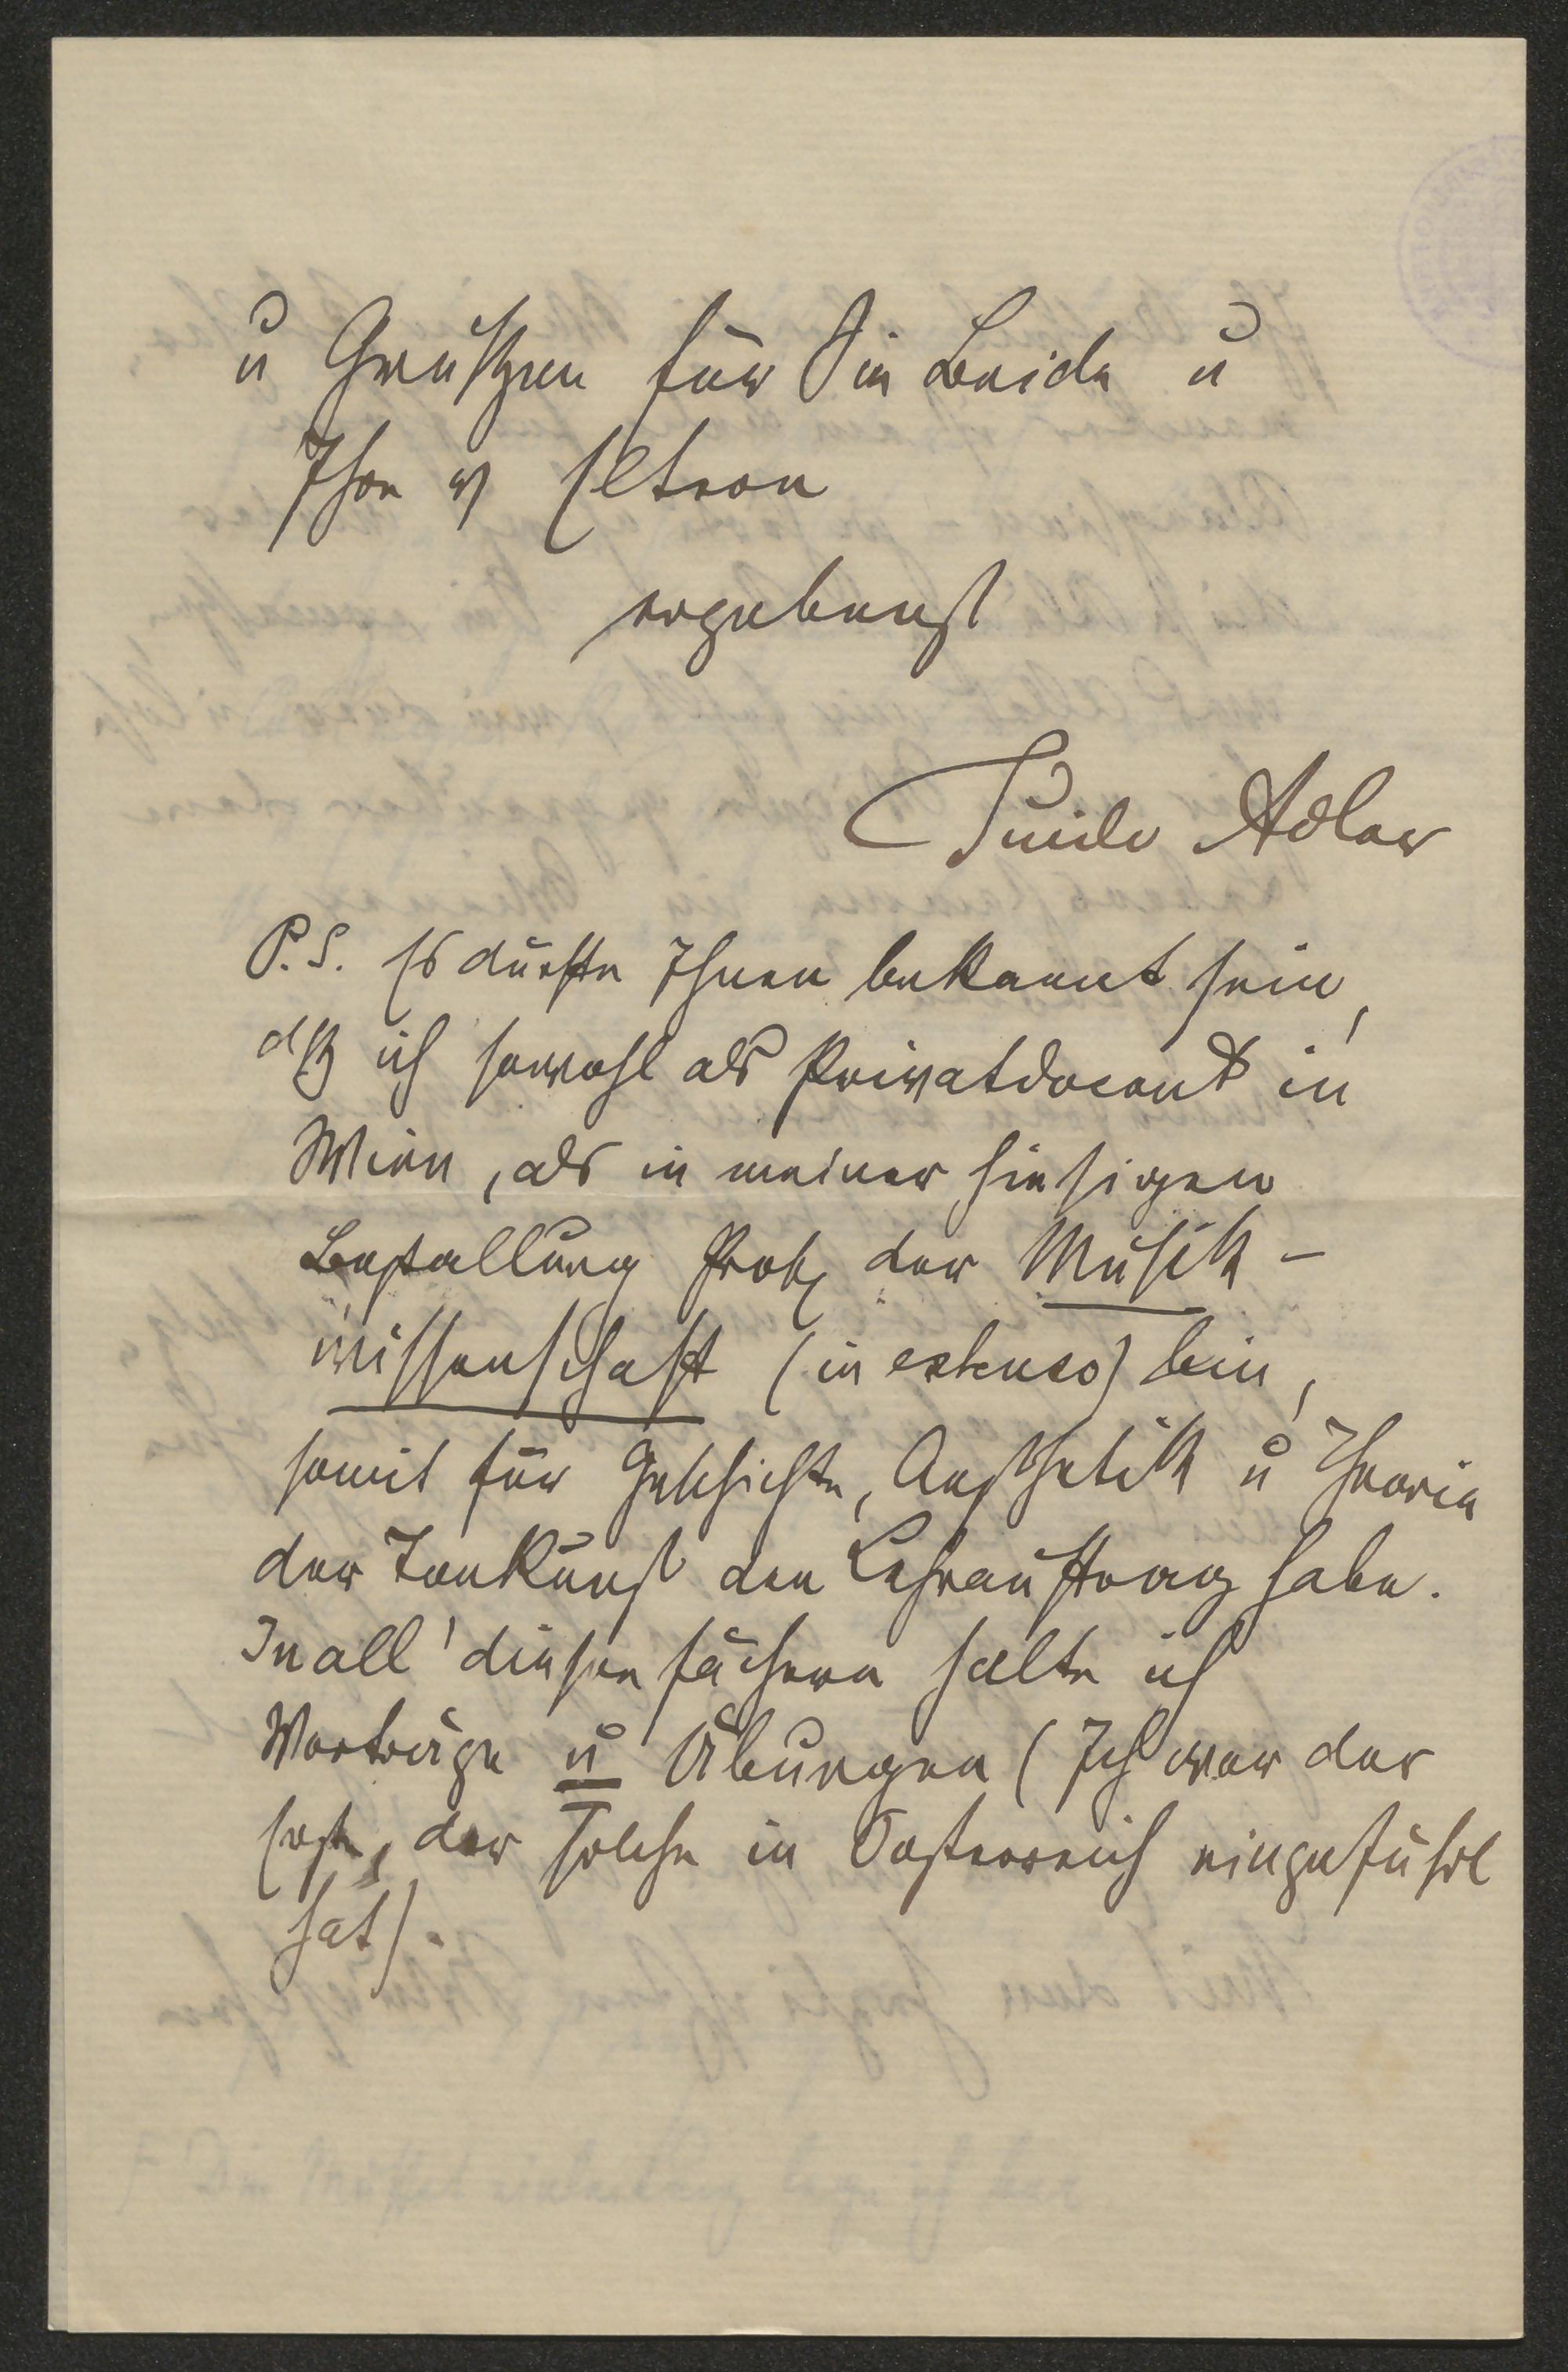 u Grüßen für Sie Beide u
Ihre v Eltern
ergebenst
Guido Adler
P.S. Es dürfte Ihnen bekannt sein,
dß ich sowohl als Privatdocent in
Wien, als in meiner hiesigen
Bestallung Prof. der Musik-
wissenschaft (in extenso) bin,
somit für Geschichte, Aesthetik u Theorie
der Tonkunst den Lehrauftrag habe.
In all' diesen Fächern halte ich
Vorträge u Übungen (Ich war der
Erste, der solche in Oesterreich eingeführt
hat).